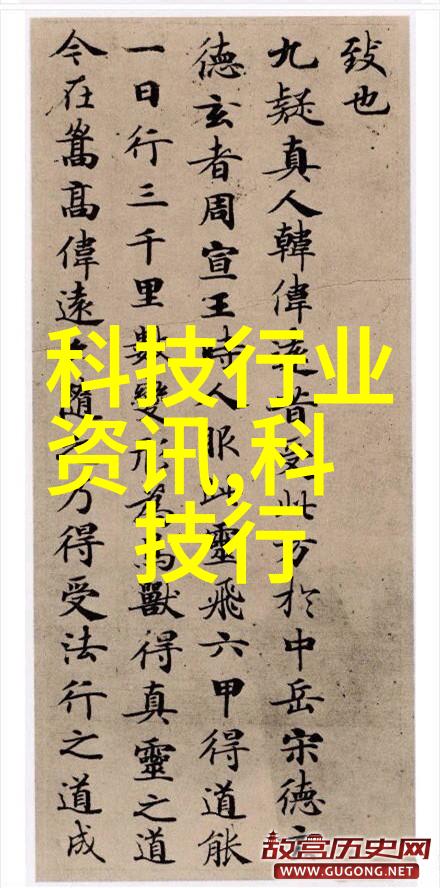 致也
九疑真人韓偉遠昔受此方於中岳宋德玄
德玄者周宣王時人服此靈飛六甲得道能
一日行三千里數變形為鳥獸得真靈之道
今在嵩高偉遠隨之乃得受法行之道成
科技行业
资讯,科
技行
故宫历史网
WWW.GUGONG.NET